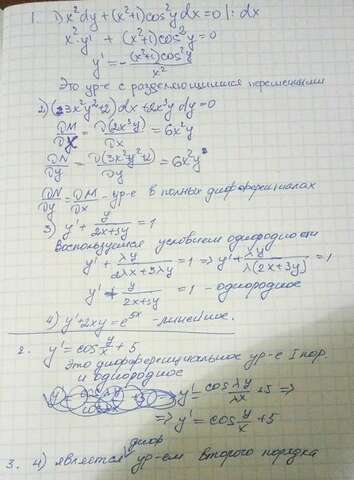 1. 1) x²dy + (x²+1)cos²y dx = 0 |: dx
x²·y' + (x²+1)cos²y = 0
y' = -(x²+1)cos²y / x²
Это ур-е с разделяющимися переменными
2) (3x²y²+2)dx + 2x³y dy = 0
∂M/∂x = ∂(2x³y)/∂x = 6x²y
∂N/∂y = ∂(3x²y²+2)/∂y = 6x²y
∂N/∂y = ∂M/∂x - ур-е в полных дифференциалах
3) y' + y/(2x+3y) = 1
Воспользуемся условием однородности
y' + λy/(2λx+3λy) = 1 => y' + λy/(λ(2x+3y)) = 1
y' + y/(2x+3y) = 1 - однородное
4) y'+2xy = e^5x - линейное.
2. y' = cos y/x + 5
Это дифференциальное ур-е I пор.
и однородное
y' = cos λy/λx + 5 =>
=> y' = cos y/x + 5
3. 4) является диф ур-ем второго порядка